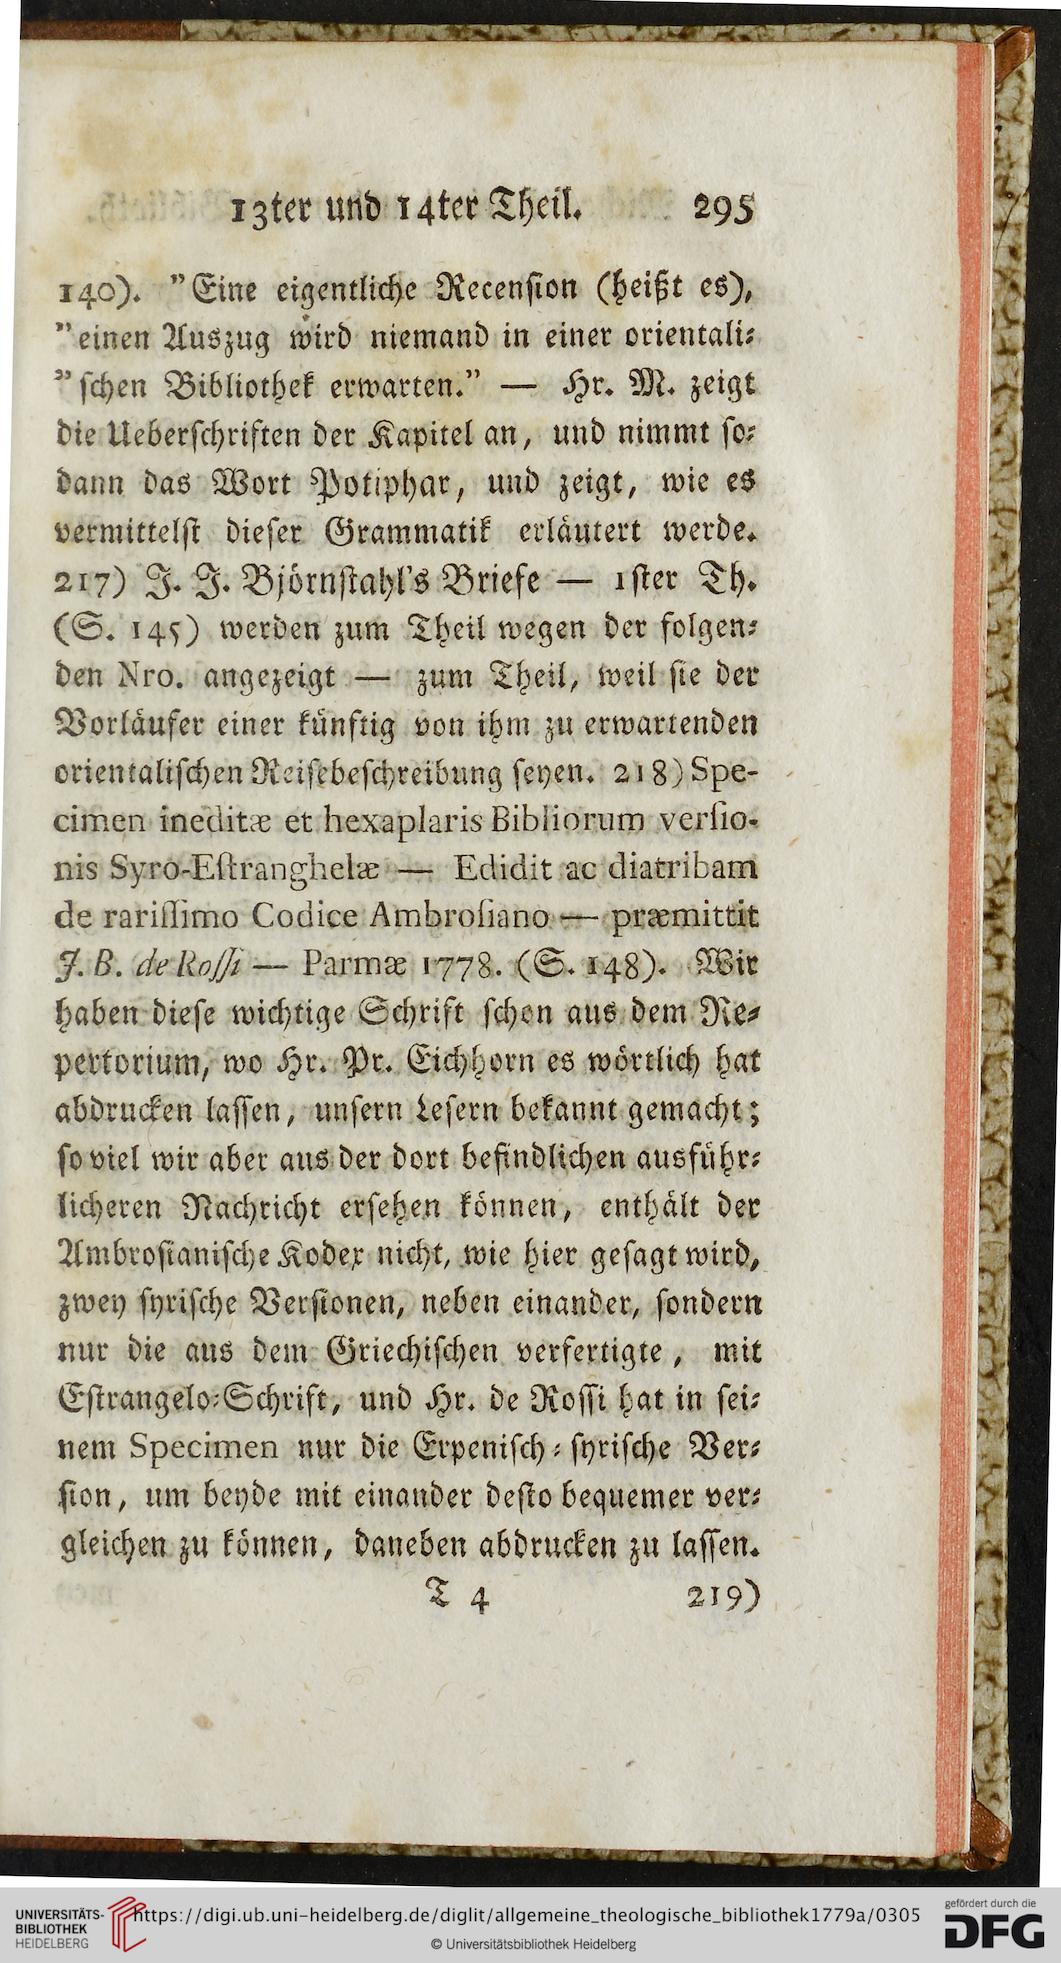 13ter und 14ter Theil. 295
140). "Eine eigentliche Recenſion (heißt es),
"einen Auszug wird niemand in einer orientali⸗
"ſchen Bibliothek erwarten." — Hr. M. zeigt
die Ueberſchriften der Kapitel an, und nimmt ſo⸗
dann das Wort Potiphar, und zeigt, wie es
vermittelſt dieſer Grammatik erläutert werde.
217) J. J. Björnſtahl's Briefe — 1ſter Th.
(S. 145) werden zum Theil wegen der folgen⸗
den Nro. angezeigt — zum Theil, weil ſie der
Vorläufer einer künftig von ihm zu erwartenden
orientaliſchen Reiſebeſchreibung ſeyen. 218) Spe-
cimen ineditæ et hexaplaris Bibliorum verſio-
nis Syro-Eſtranghelæ — Edidit ac diatribam
de rariſſimo Codice Ambroſiano — præmittit
J. B. de Roſſi — Parmæ 1778. (S. 148). Wir
haben dieſe wichtige Schrift ſchon aus dem Re⸗
pertorium, wo Hr. Pr. Eichhorn es wörtlich hat
abdrucken laſſen, unſern Leſern bekannt gemacht;
ſo viel wir aber aus der dort befindlichen ausführ⸗
licheren Nachricht erſehen können, enthält der
Ambroſianiſche Kodex nicht, wie hier geſagt wird,
zwey ſyriſche Verſionen, neben einander, ſondern
nur die aus dem Griechiſchen verfertigte, mit
Eſtrangelo⸗Schrift, und Hr. de Roſſi hat in ſei⸗
nem Specimen nur die Erpeniſch⸗ſyriſche Ver⸗
ſion, um beyde mit einander deſto bequemer ver⸗
gleichen zu können, daneben abdrucken zu laſſen.
T 4 219)
UNIVERSITÄTS-
BIBLIOTHEK
HEIDELBERG
https://digi.ub.uni-heidelberg.de/diglit/allgemeine_theologische_bibliothek1779a/0305
© Universitätsbibliothek Heidelberg
gefördert durch die
DFG